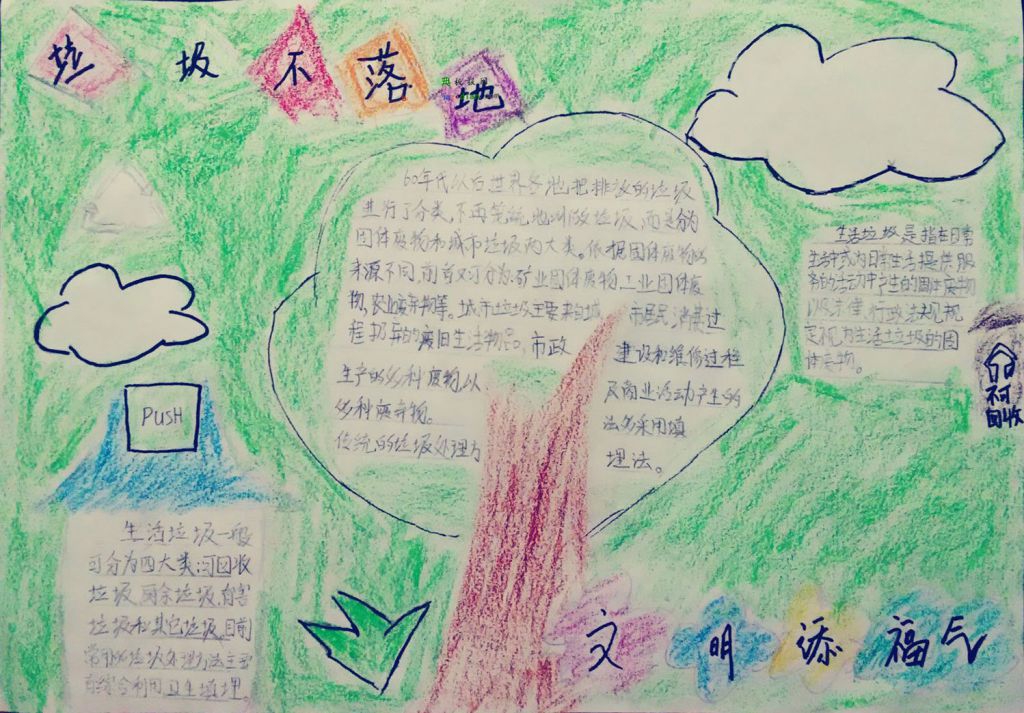 垃圾不落地
60年代以后世界各地把排放的垃圾
进行了分类,不再笼统地叫做垃圾,而是分为
固体废物和城市垃圾两大类。依据固体废物的
来源不同,前者又可分为:矿业固体废物,工业固体废
物,农业废弃物等。城市垃圾主要来自城 市居民消费过
程扔弃的废旧生活物品,市政 建设和维修过程
生产的多种废物以 及商业活动产生的
多种废弃物。 法多采用填
传统的垃圾处理方 埋法。
生活垃圾是指在日常
生活中或为日常生活提供服
务的活动中产生的固体废物
以及法律,行政法规规
定视为生活垃圾的固
体废物。
不可
回收
PUSH
生活垃圾一般
可分为四大类:可回收
垃圾,厨余垃圾,有害
垃圾和其它垃圾,目前
常用的垃圾处理方法主要
有综合利用,卫生填埋,
文明添福气